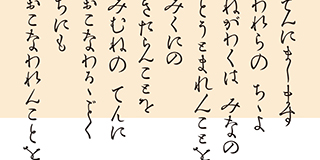 てんにまします
われらのちゝよ
ねがわくは みなの
とうとまれんことを
みくにの
きたらんことを
みむねの てんに
おこなわるゝごとく
ちにも
おこなわれんことを